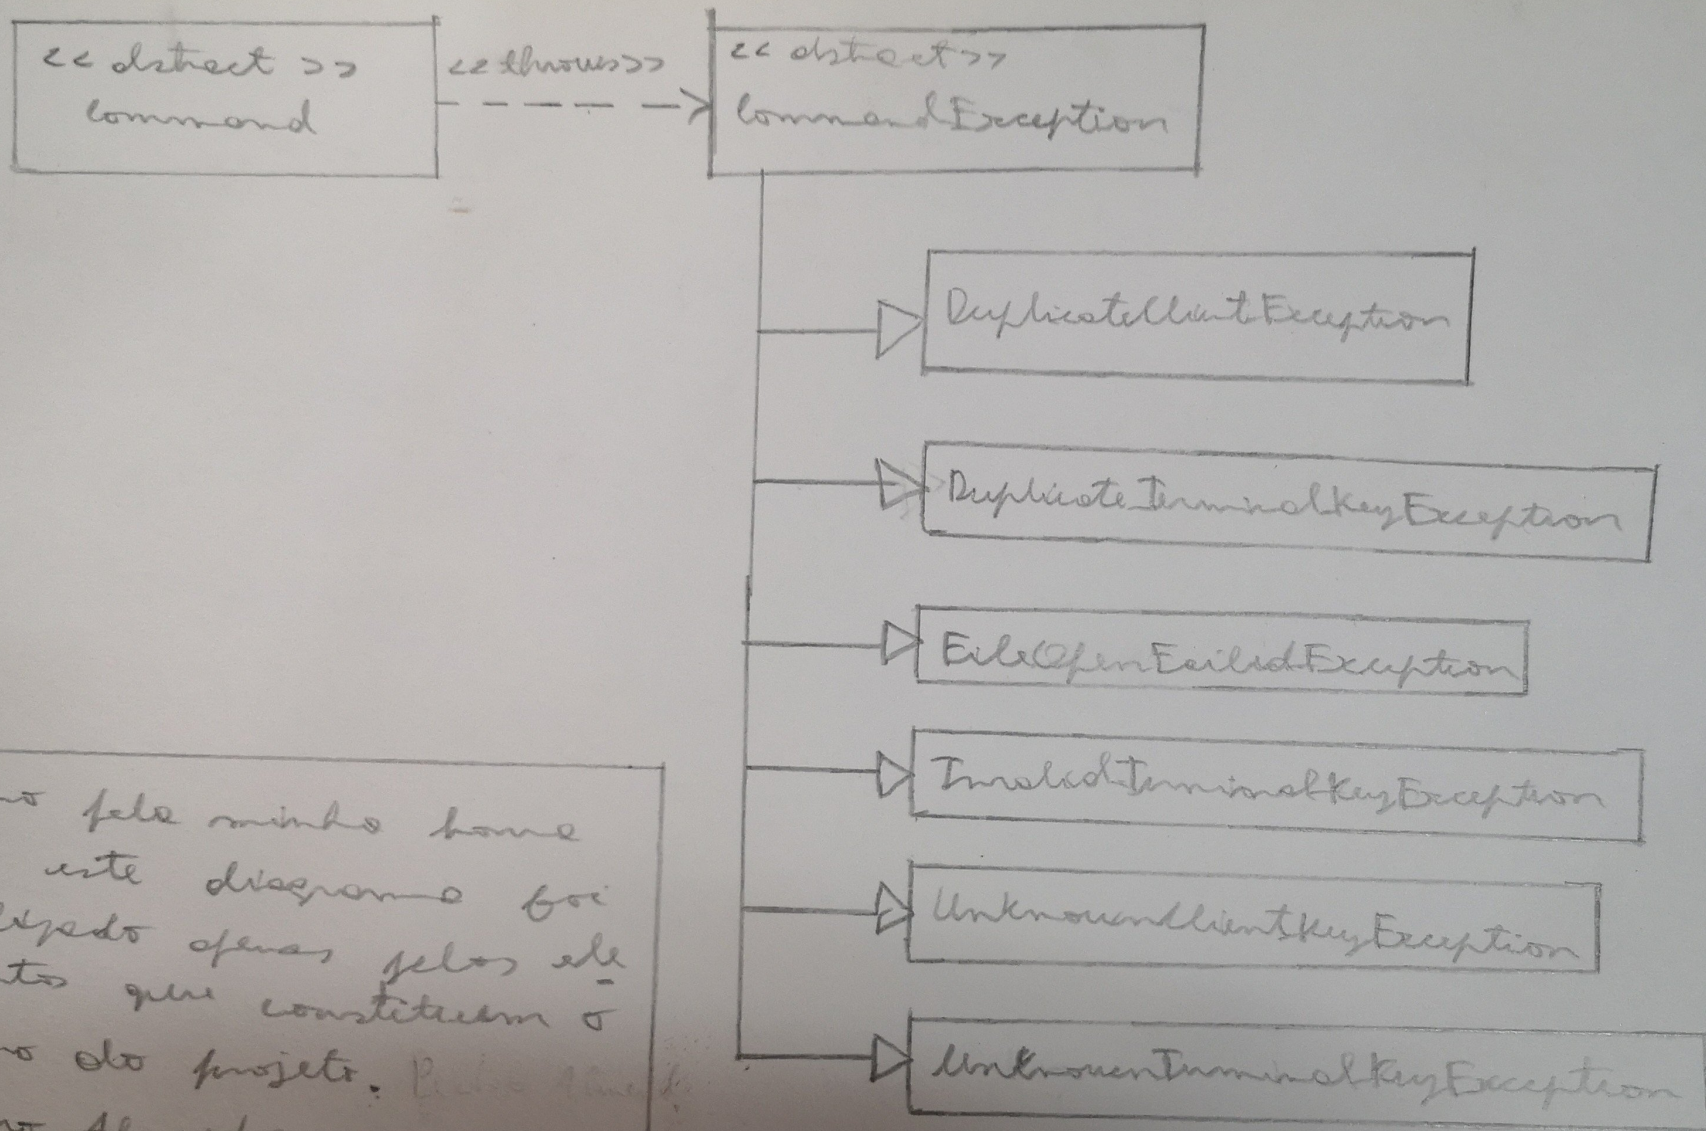 << abstract >>
Command
<<throws>>
<< abstract >>
CommandException
DuplicateClientException
DuplicateTerminalKeyException
FileOpenFailedException
InvalidTerminalKeyException
UnknownClientKeyException
UnknownTerminalKeyException
pela minha honra
este diagrama foi
apenas pelos ele
que constituem o
do projeto.